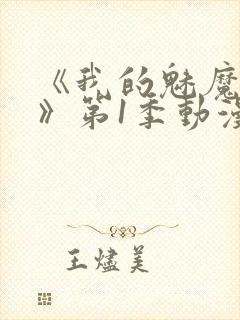 《我的魅魔
》第1季動漫
王燼美